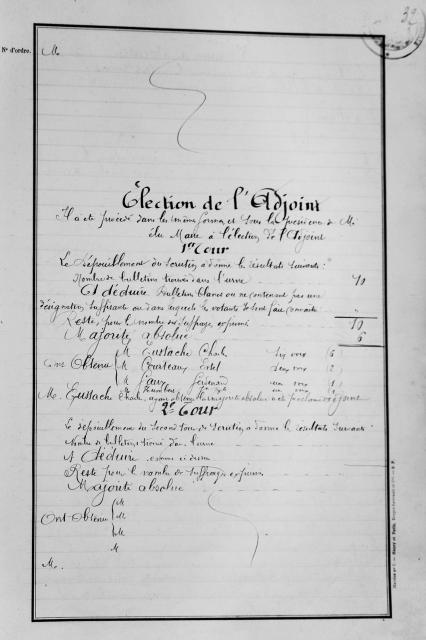 32
N° d'ordre.
M.
Élection de l'Adjoint
Il a été procédé dans les même forme et sous la présidence de M.
élu Maire à l'élection de l'Adjoint
1er Tour
Le dépouillement du scrutin a donné les résultats suivants :
Nombre de bulletins trouvés dans l'urne 10
Et déduire bulletins blancs ou ne contenant pas une
désignation suffisante ou dans lesquels les votants se sont fait connaître
Reste pour le nombre des suffrage exprimé 10
Majorité absolue 6
Ont Obtenu
M Eustache Charles six voix (6)
M Courteaux deux voix (2)
M une voix (1)
M une voix (1)
M. Eustache Charles, ayant obtenu la majorité absolue a été proclamé adjoint
2e Tour
Le dépouillement du second tour de scrutin a donné les résultats suivants
Nombre de bulletins trouvé dans l'urne
A déduire comme ci dessus
Reste pour le nombre de suffrage exprimés
Majorité absolue
Ont Obtenu
M
M
M
M
M.